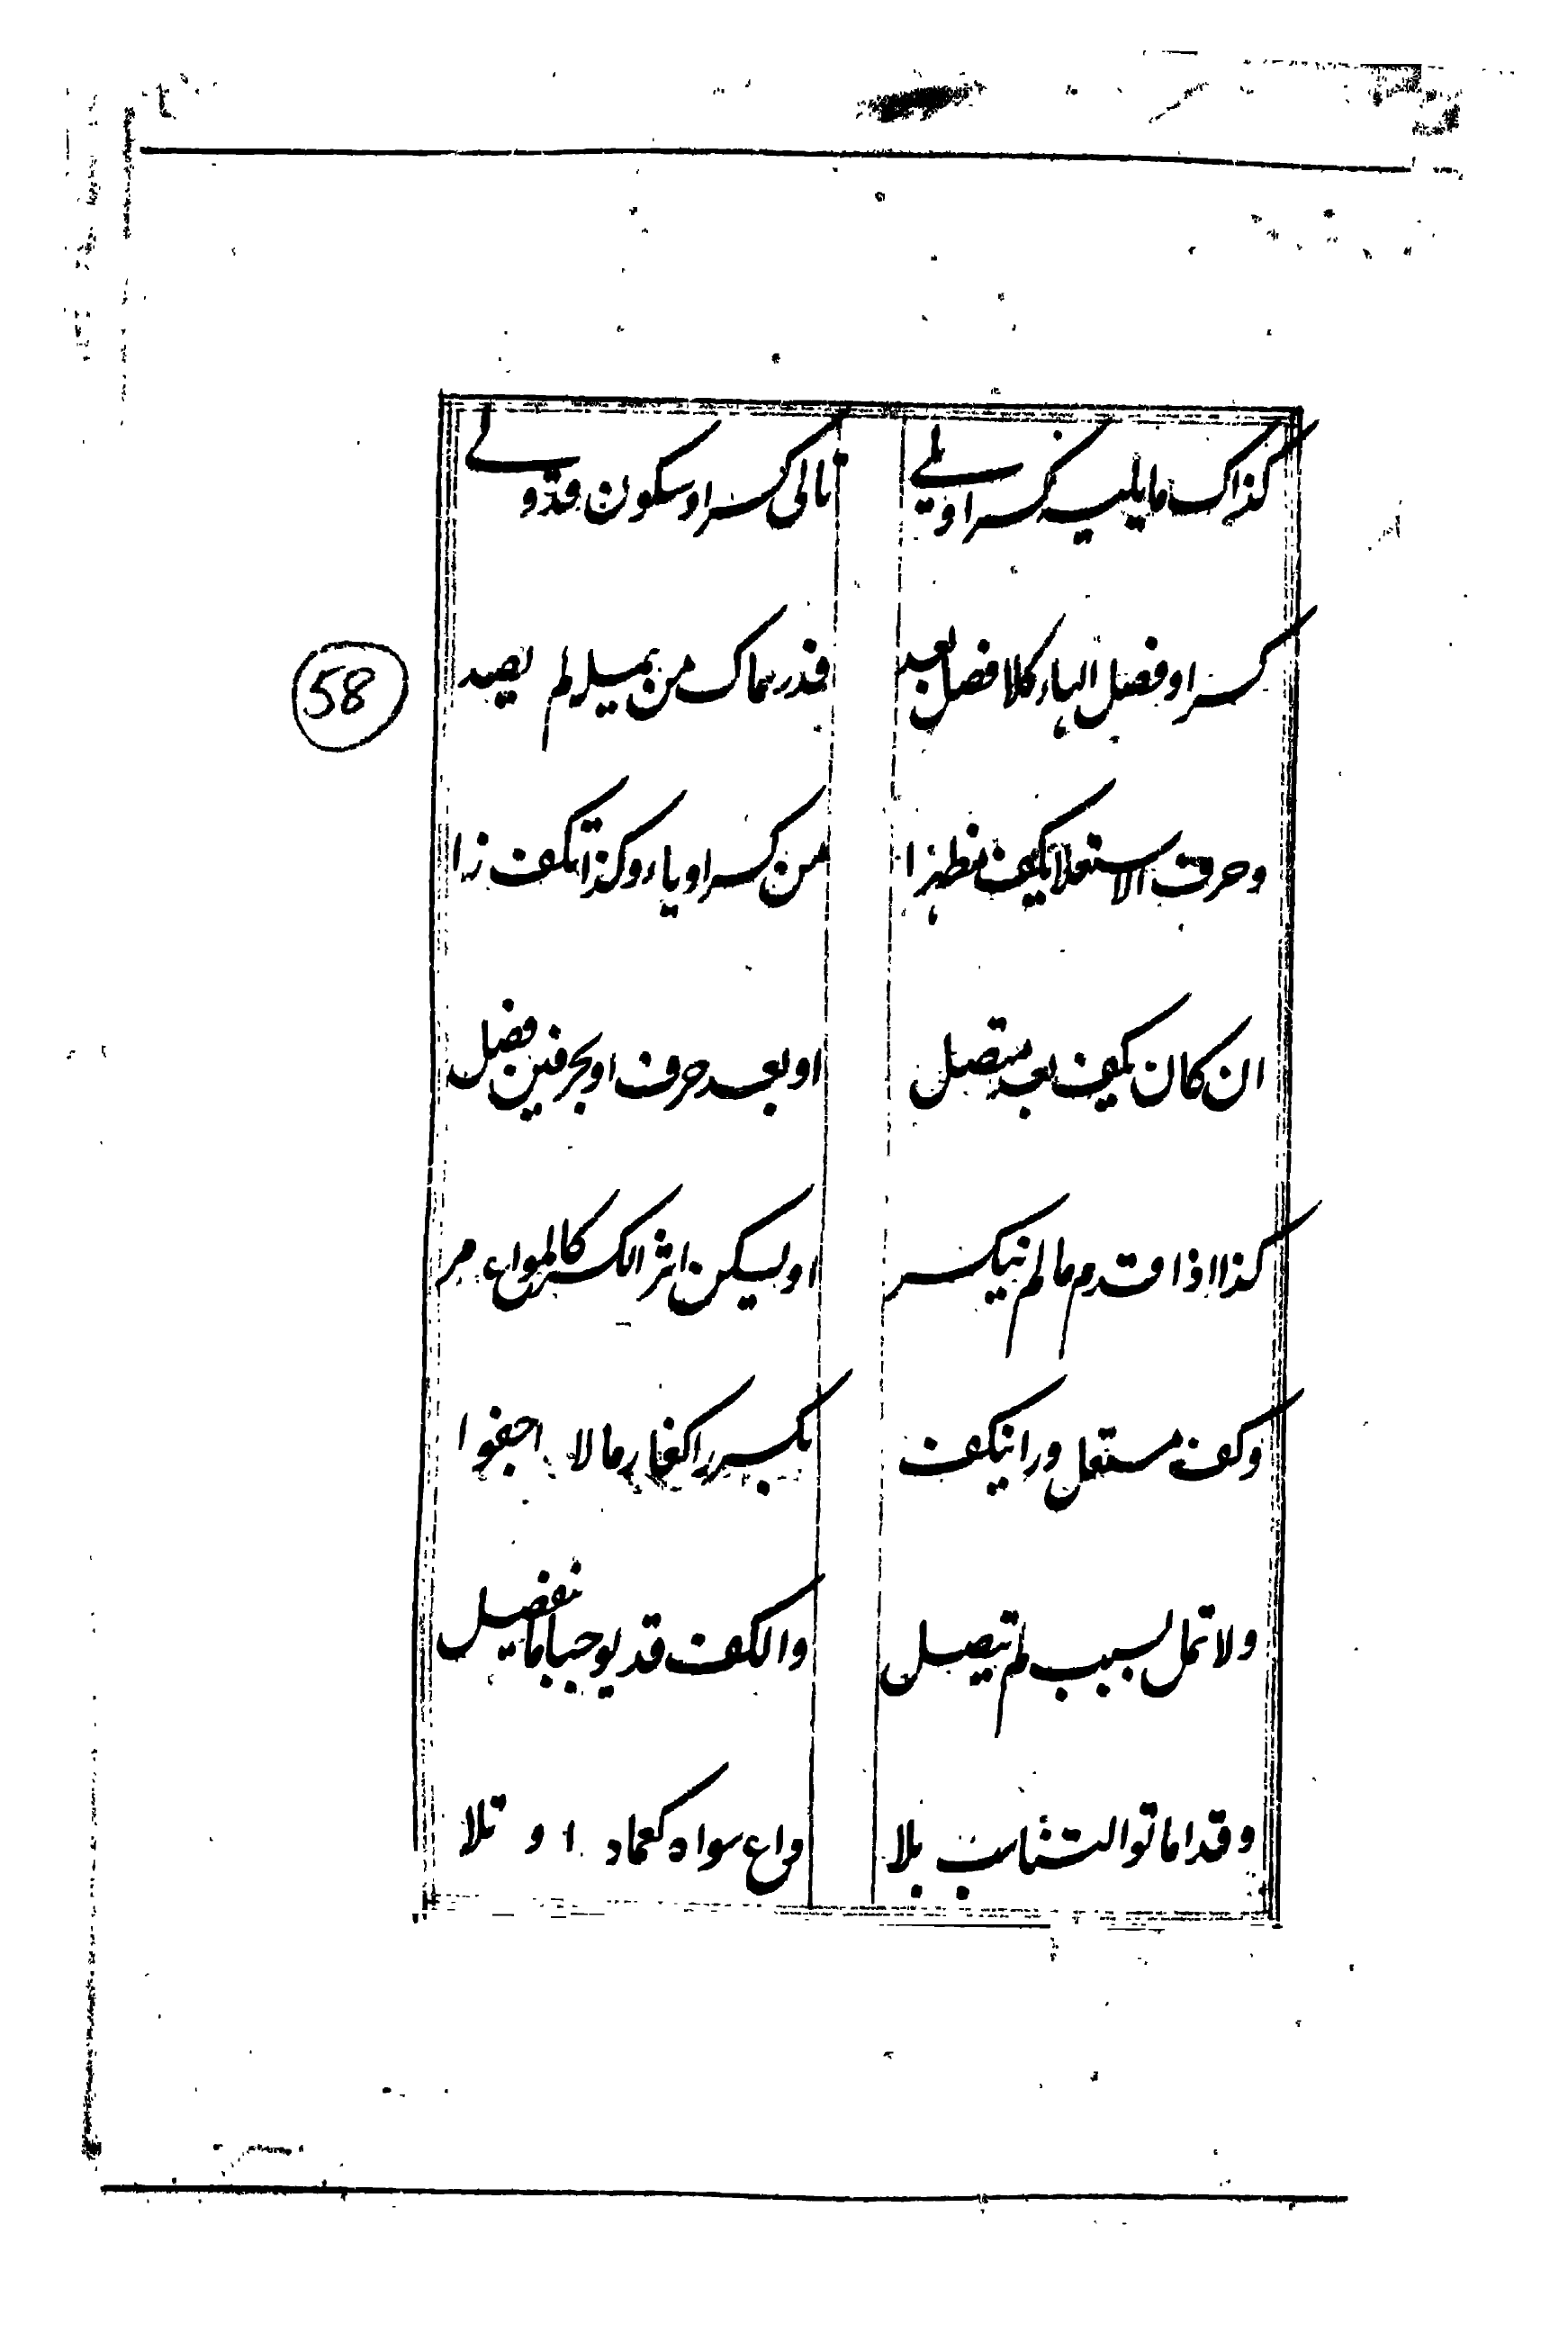 كذاك ما يليه كسر او يلي تالي كسر او سكون قد ولي
كسرا وفصل الهاء كلا فصل يعد فدرهماك من يميله لم يصد
58
وحرف الاستعلا يكف مظهرا من كسر او ياء وكذا تكف را
ان كان يكف بعد متصل او بعد حرف او بحرفين فصل
كذا اذا قدم ما لم ينكسر او يسكن اثر الكسر كالمطواع مر
وكف مستعل ورا ينكف بكسر را كغارما لا اجفوا
ولا تمل لسبب لم يتصل والكف قد يوجبه ما ينفصل
وقد اما لوا لتناسب بلا داع سواه كعمادا و تلا